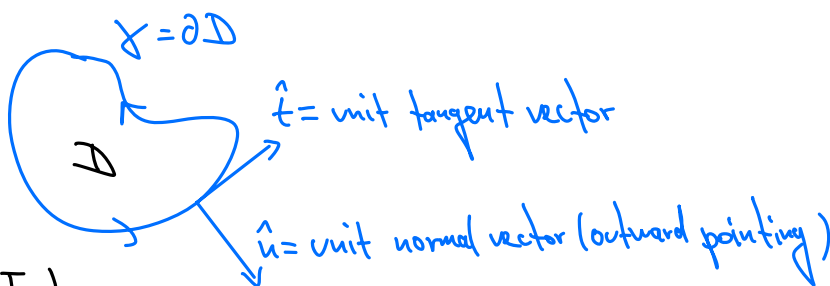 γ = ∂D
t̂ = unit tangent vector
D
n̂ = unit normal vector (outward pointing)